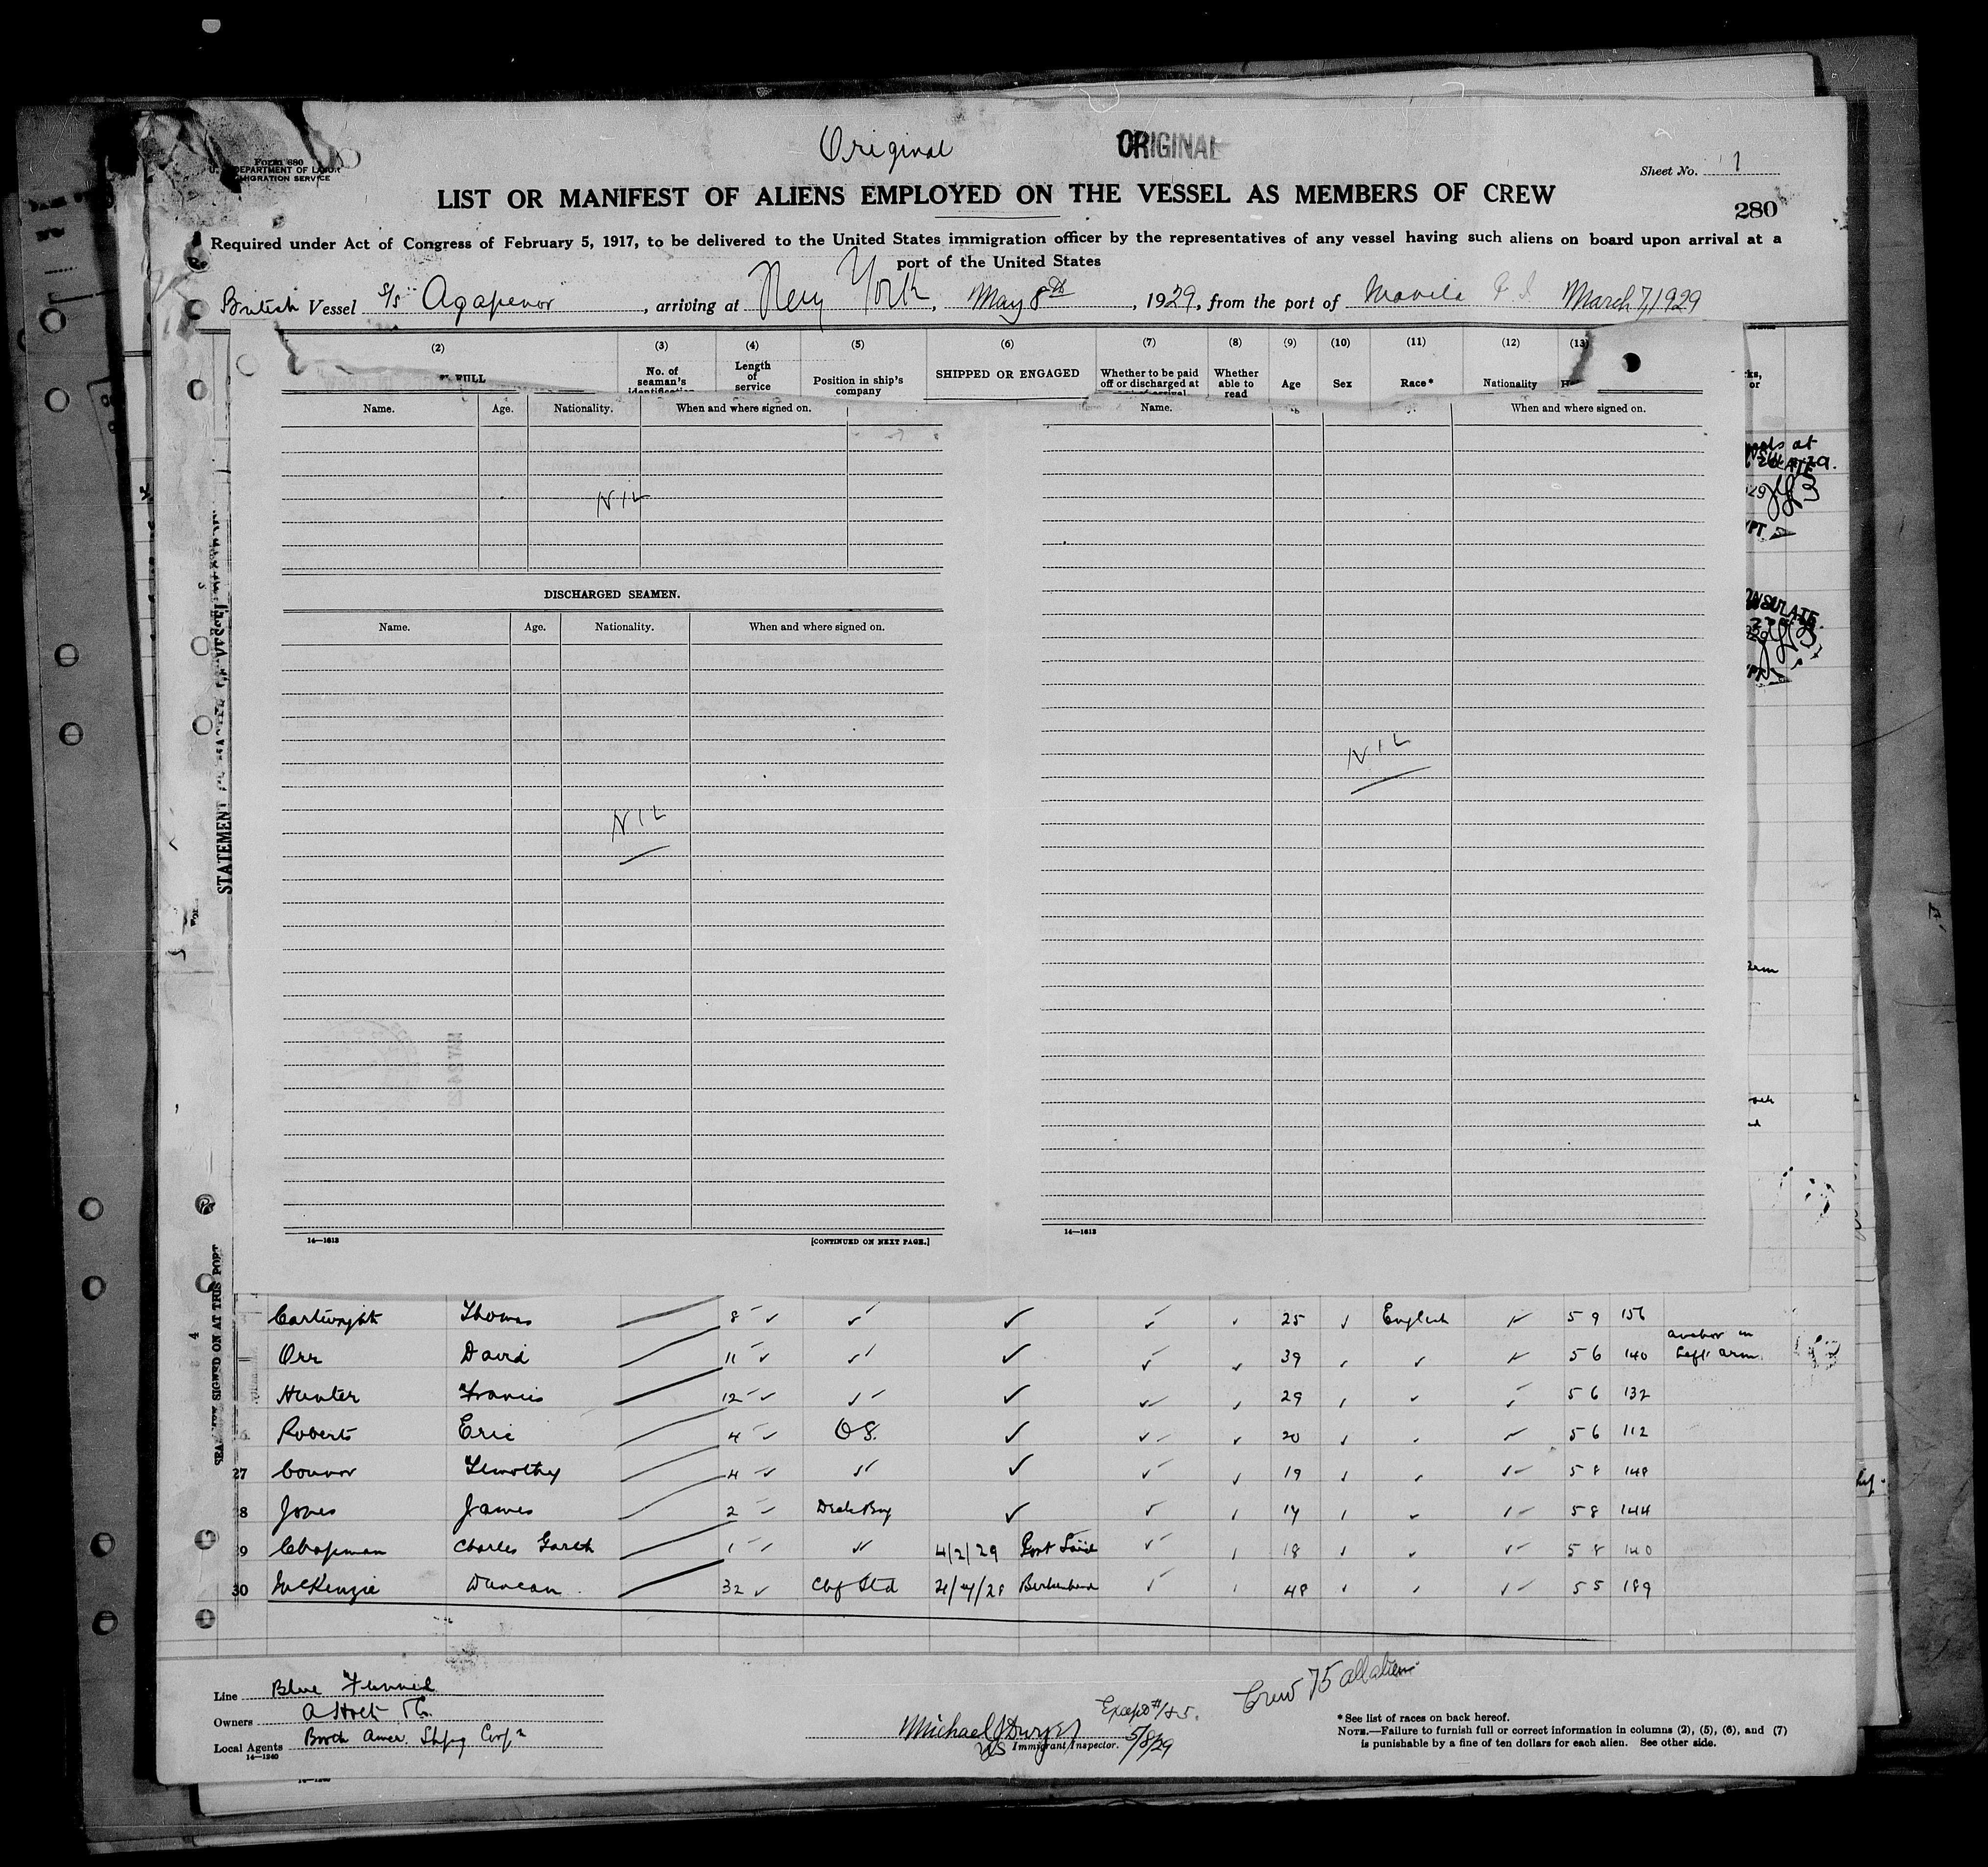 Original ORIGINAL
Form 680
U. S. DEPARTMENT OF LABOR
IMMIGRATION SERVICE
Sheet No. 1
LIST OR MANIFEST OF ALIENS EMPLOYED ON THE VESSEL AS MEMBERS OF CREW
280
Required under Act of Congress of February 5, 1917, to be delivered to the United States immigration officer by the representatives of any vessel having such aliens on board upon arrival at a
port of the United States
British Vessel S/S Agapenor, arriving at New York, May 8th, 1929, from the port of Manila P. I. March 7, 1929
(2) (3) (4) (5) (6) (7) (8) (9) (10) (11) (12) (13)
FULL No. of seaman's identification Length of service Position in ship's company SHIPPED OR ENGAGED Whether to be paid off or discharged at Whether able to read Age Sex Race* Nationality
Name. Age. Nationality. When and where signed on.
NIL
DISCHARGED SEAMEN.
Name. Age. Nationality. When and where signed on.
NIL
14—1613 [CONTINUED ON NEXT PAGE.]
Name. When and where signed on.
NIL
14—1613
STATEMENT
SIGNED ON AT THIS PORT
4
Cartwright Thomas 8 25 English 5 9 156
Orr David 11 39 5 6 140 anchor on left arm
Hunter Francis 12 29 5 6 132
Roberts Eric 4 OS. 20 5 6 112
27 Connor Timothy 4 19 5 8 148
8 Jones James 2 Deck Boy 5 8 144
9 Chapman Charles Gareth 1 4/2/29 Port Said 18 5 8 140
30 McKenzie Duncan 32 Chf Std Birkenhead 48 5 5 189
Line Blue Funnel
Owners A Holt & Co.
Local Agents Booth Amer. Shpg Corpn
14—1240
Crew 75 all aliens
Except #1 & 5.
Michael J Dwyer 5/8/29
US Immigrant Inspector.
*See list of races on back hereof.
NOTE.—Failure to furnish full or correct information in columns (2), (5), (6), and (7)
is punishable by a fine of ten dollars for each alien. See other side.